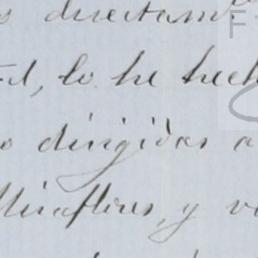 s directam.te
d, lo he hech
o dirigidas a
Miraflores, y v